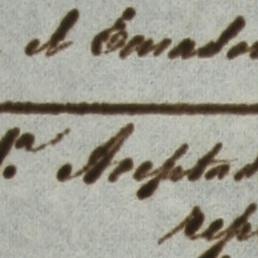 el Ecuador
pa Aceptad
rep